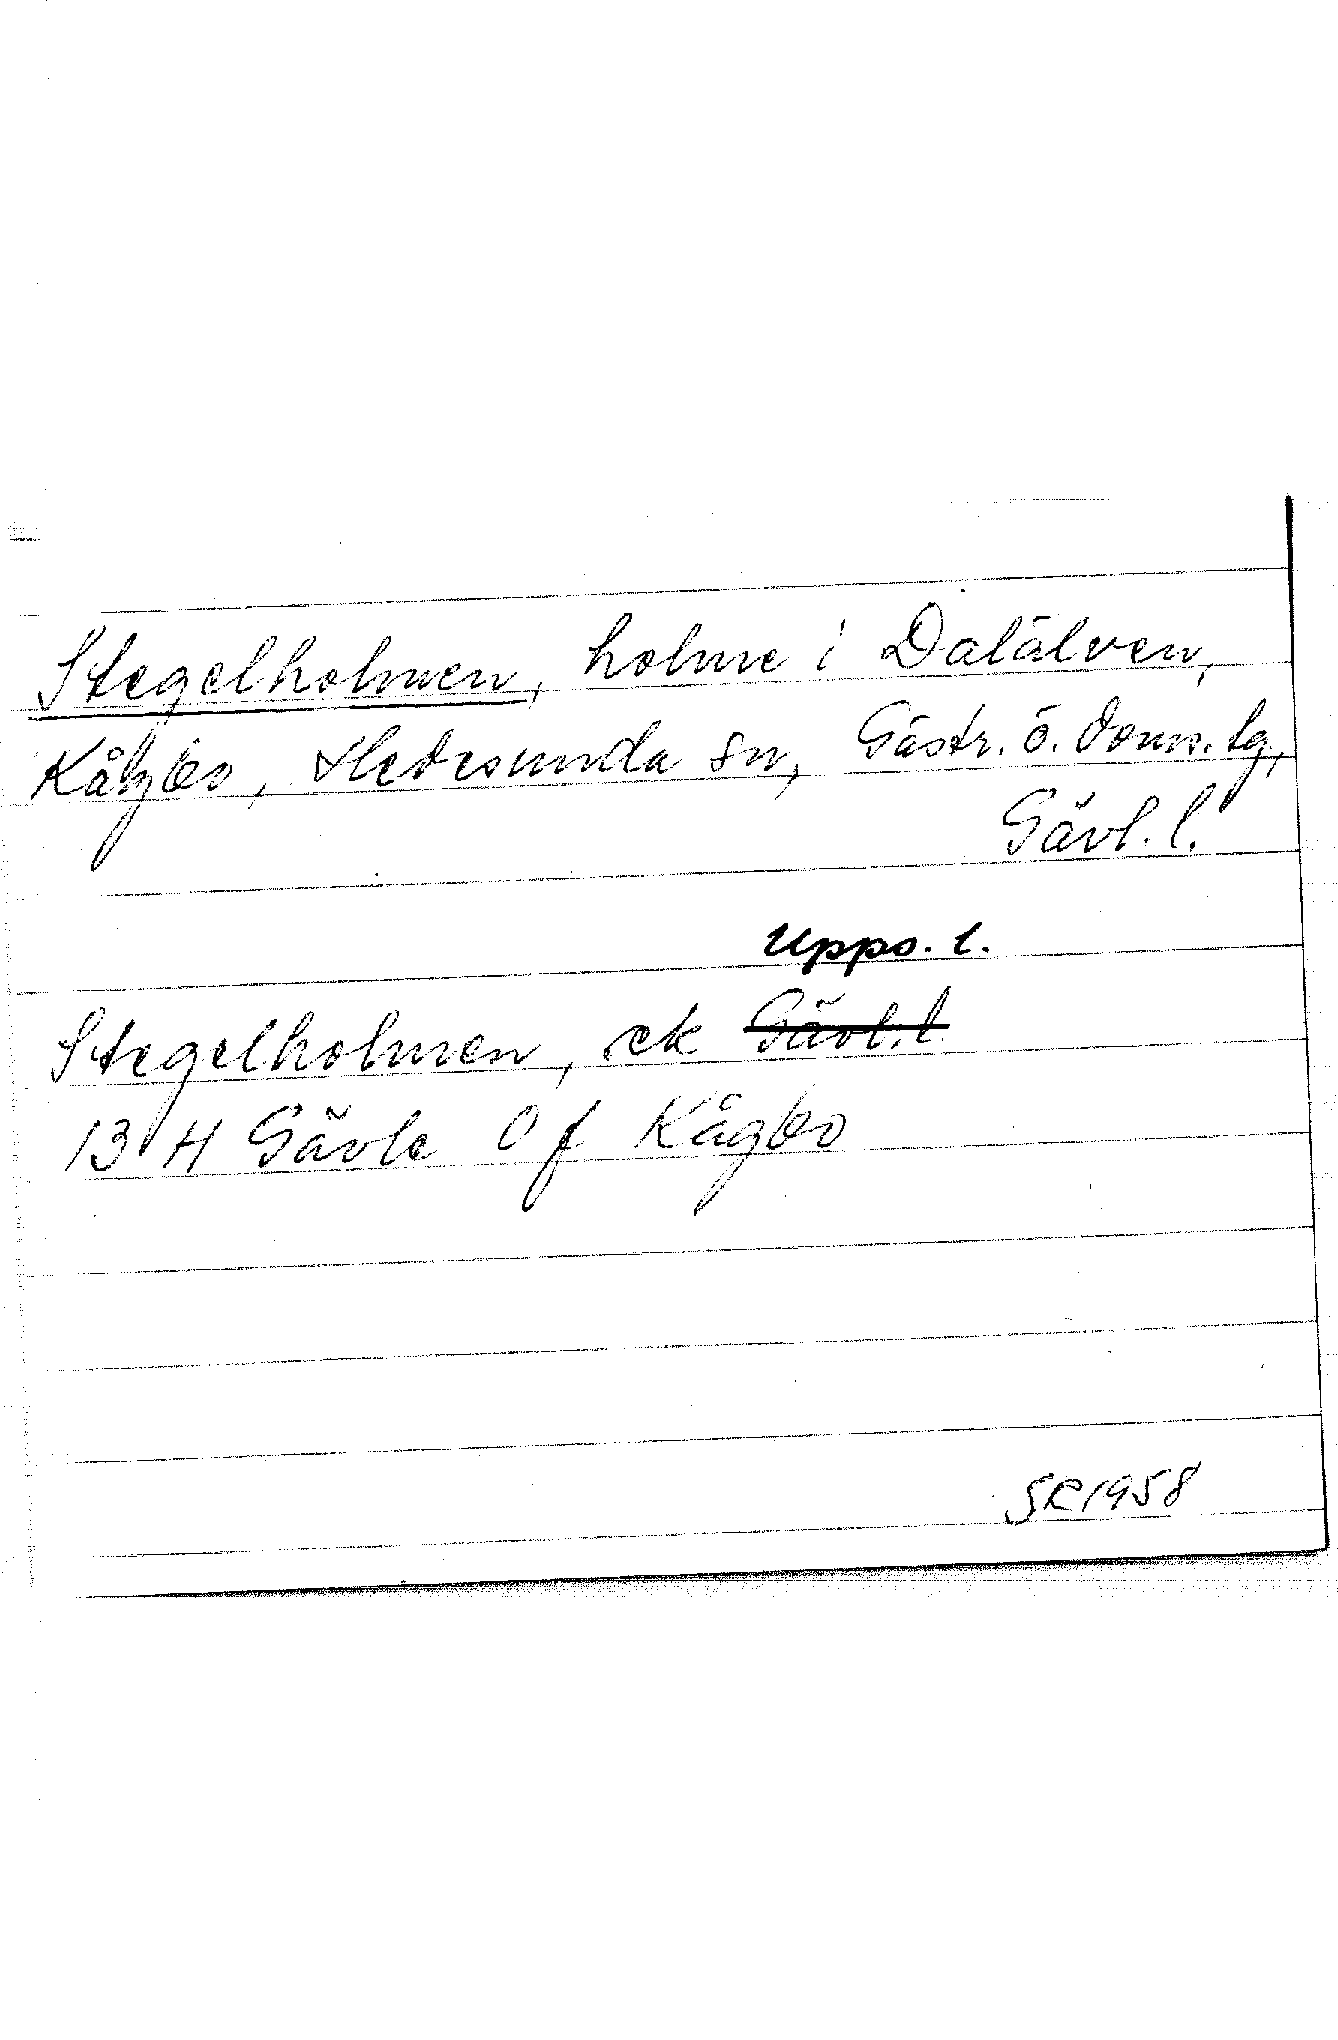 Stegelholmen, holme i Dalälven,
Kågbo, Hedesunda sn, Gästr. ö. doms. tg,
Gävl. l.
Upps. l.
Stegelholmen, ek Gävl. l
13 H Gävle 0 f Kågbo
SR 1958